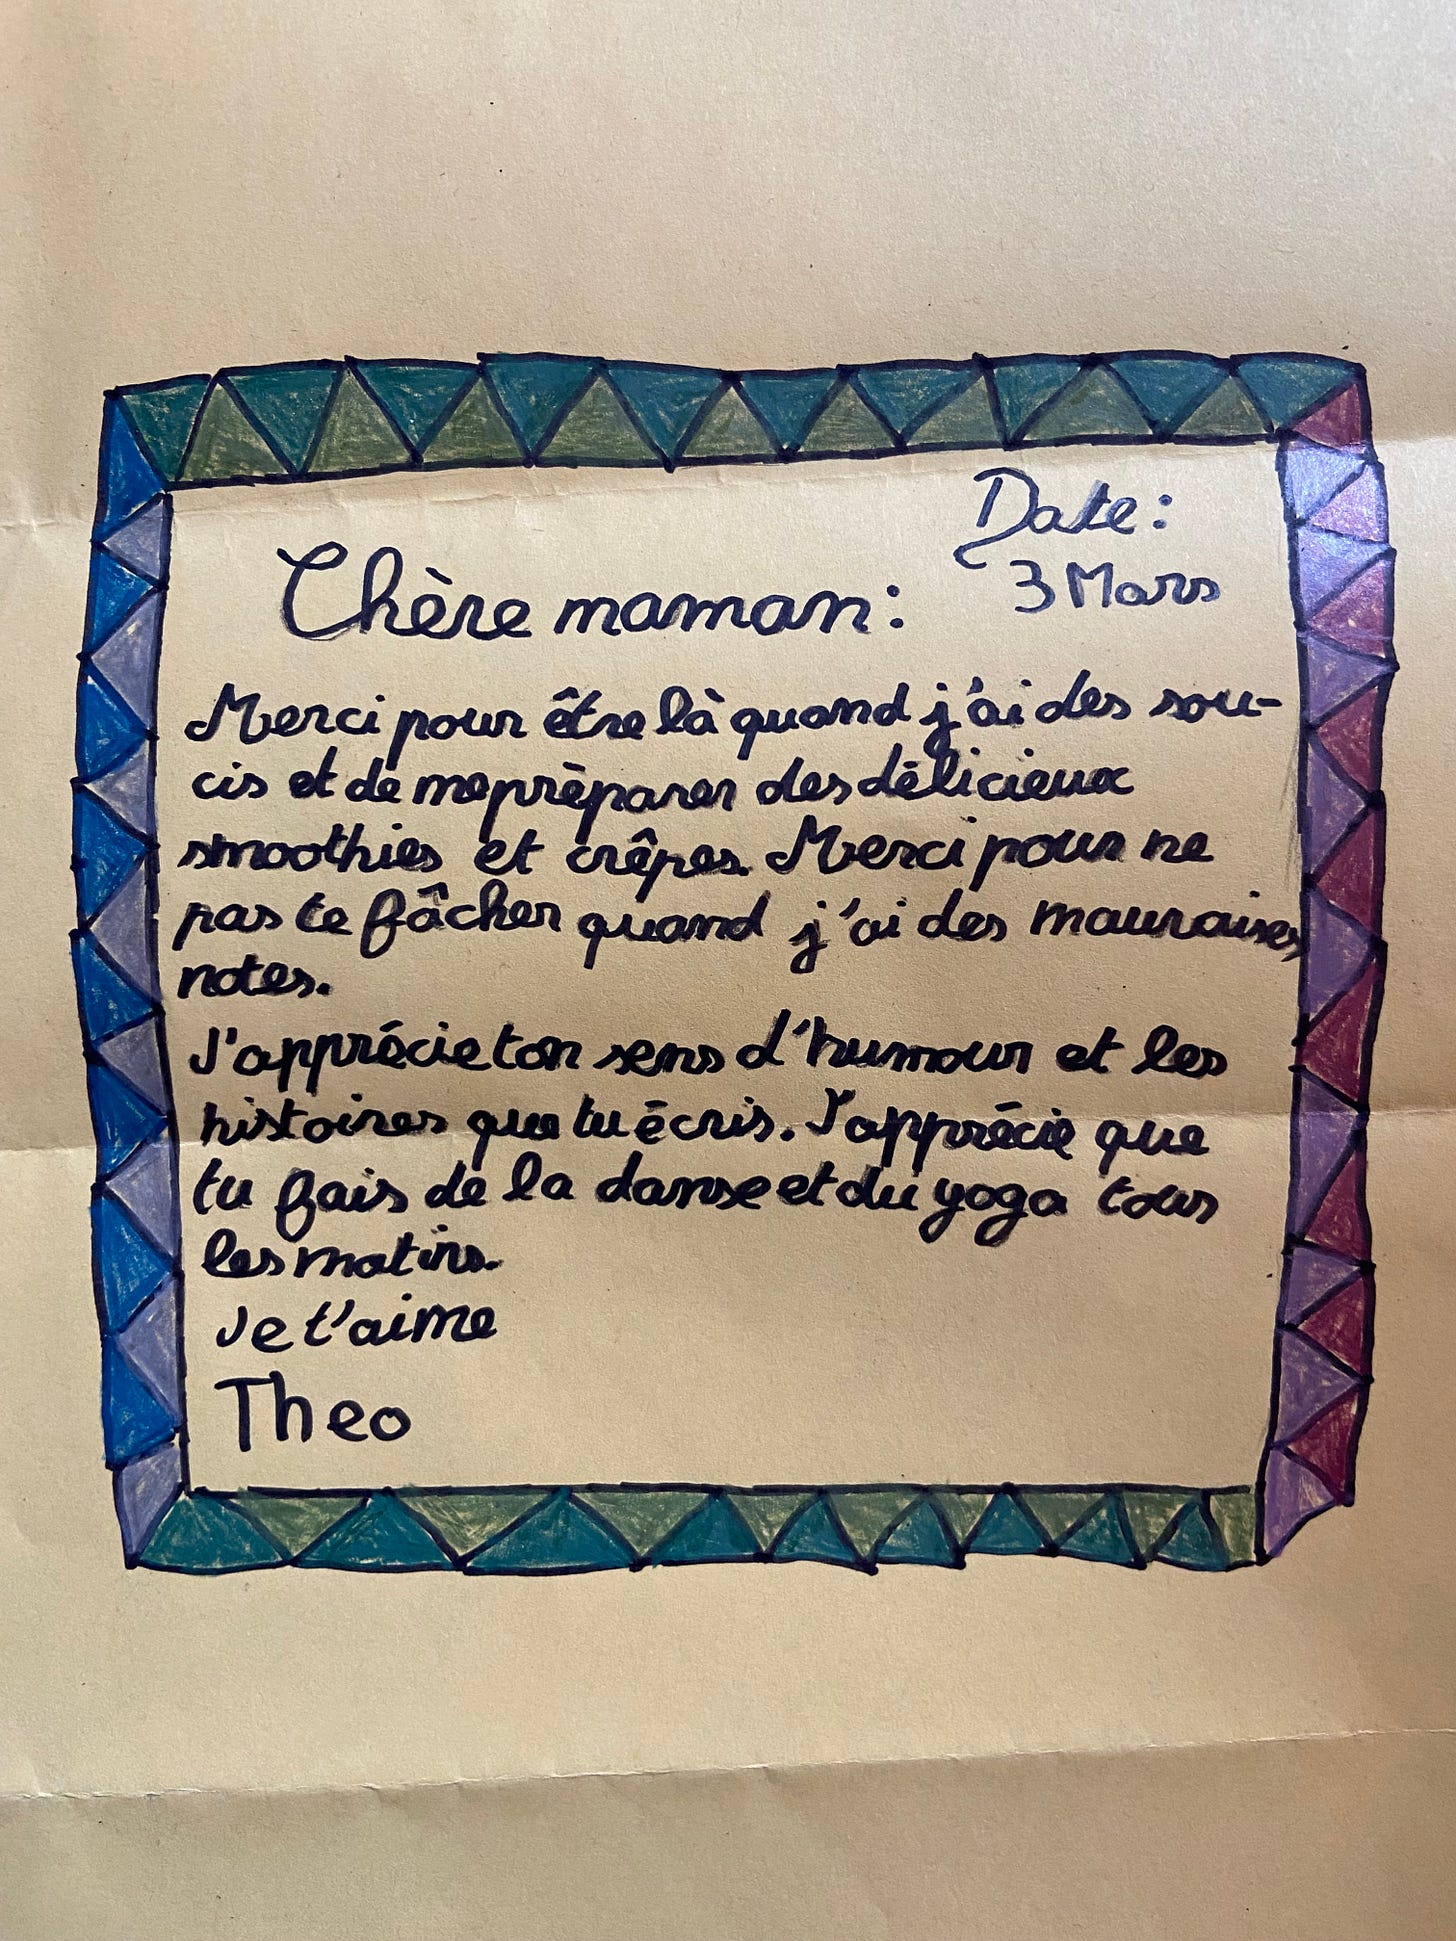 Date:
3 Mars
Chère maman:
Merci pour être là quand j'ai des sou-
cis et de me préparer des délicieux
smoothies et crêpes. Merci pour ne
pas te fâcher quand j'ai des mauvaises
notes.
J'apprécie ton sens d'humour et les
histoires que tu écris. J'apprécie que
tu fais de la danse et du yoga tous
les matins.
Je t'aime
Theo